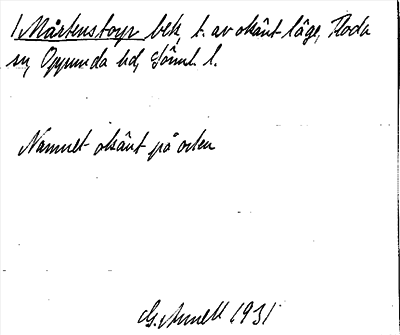 /Mårtenstorp bek, t. av okänt läge, Floda
sn, Oppunda hd, Söml. l.
Namnet okänt på orten
G. Annell 1931